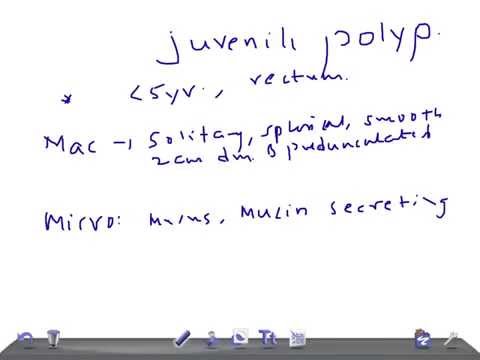 juvenili polyp.
* <5yr., rectum.
Mac → Solitary, spherical, smooth
2cm dm. & pedunculated
Micro: , Mucin secreting
Tt